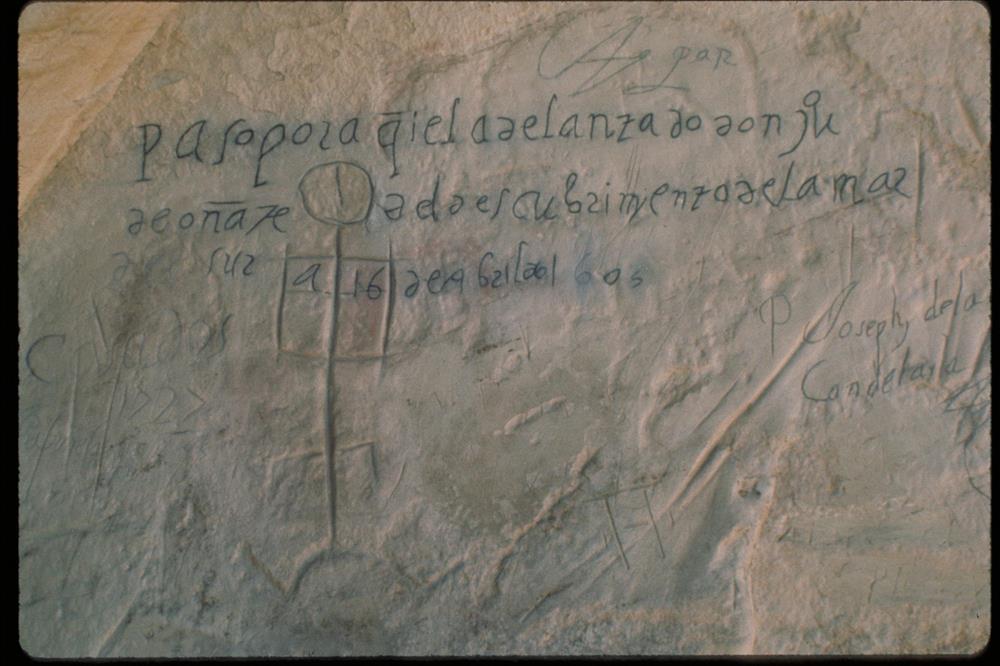 Agpar
pasopora q̄iel adelantado don ju
de oñate adel descubrimento de la mar
del sur a 16 de Abril del 605
P Joseph de la
Candelaria